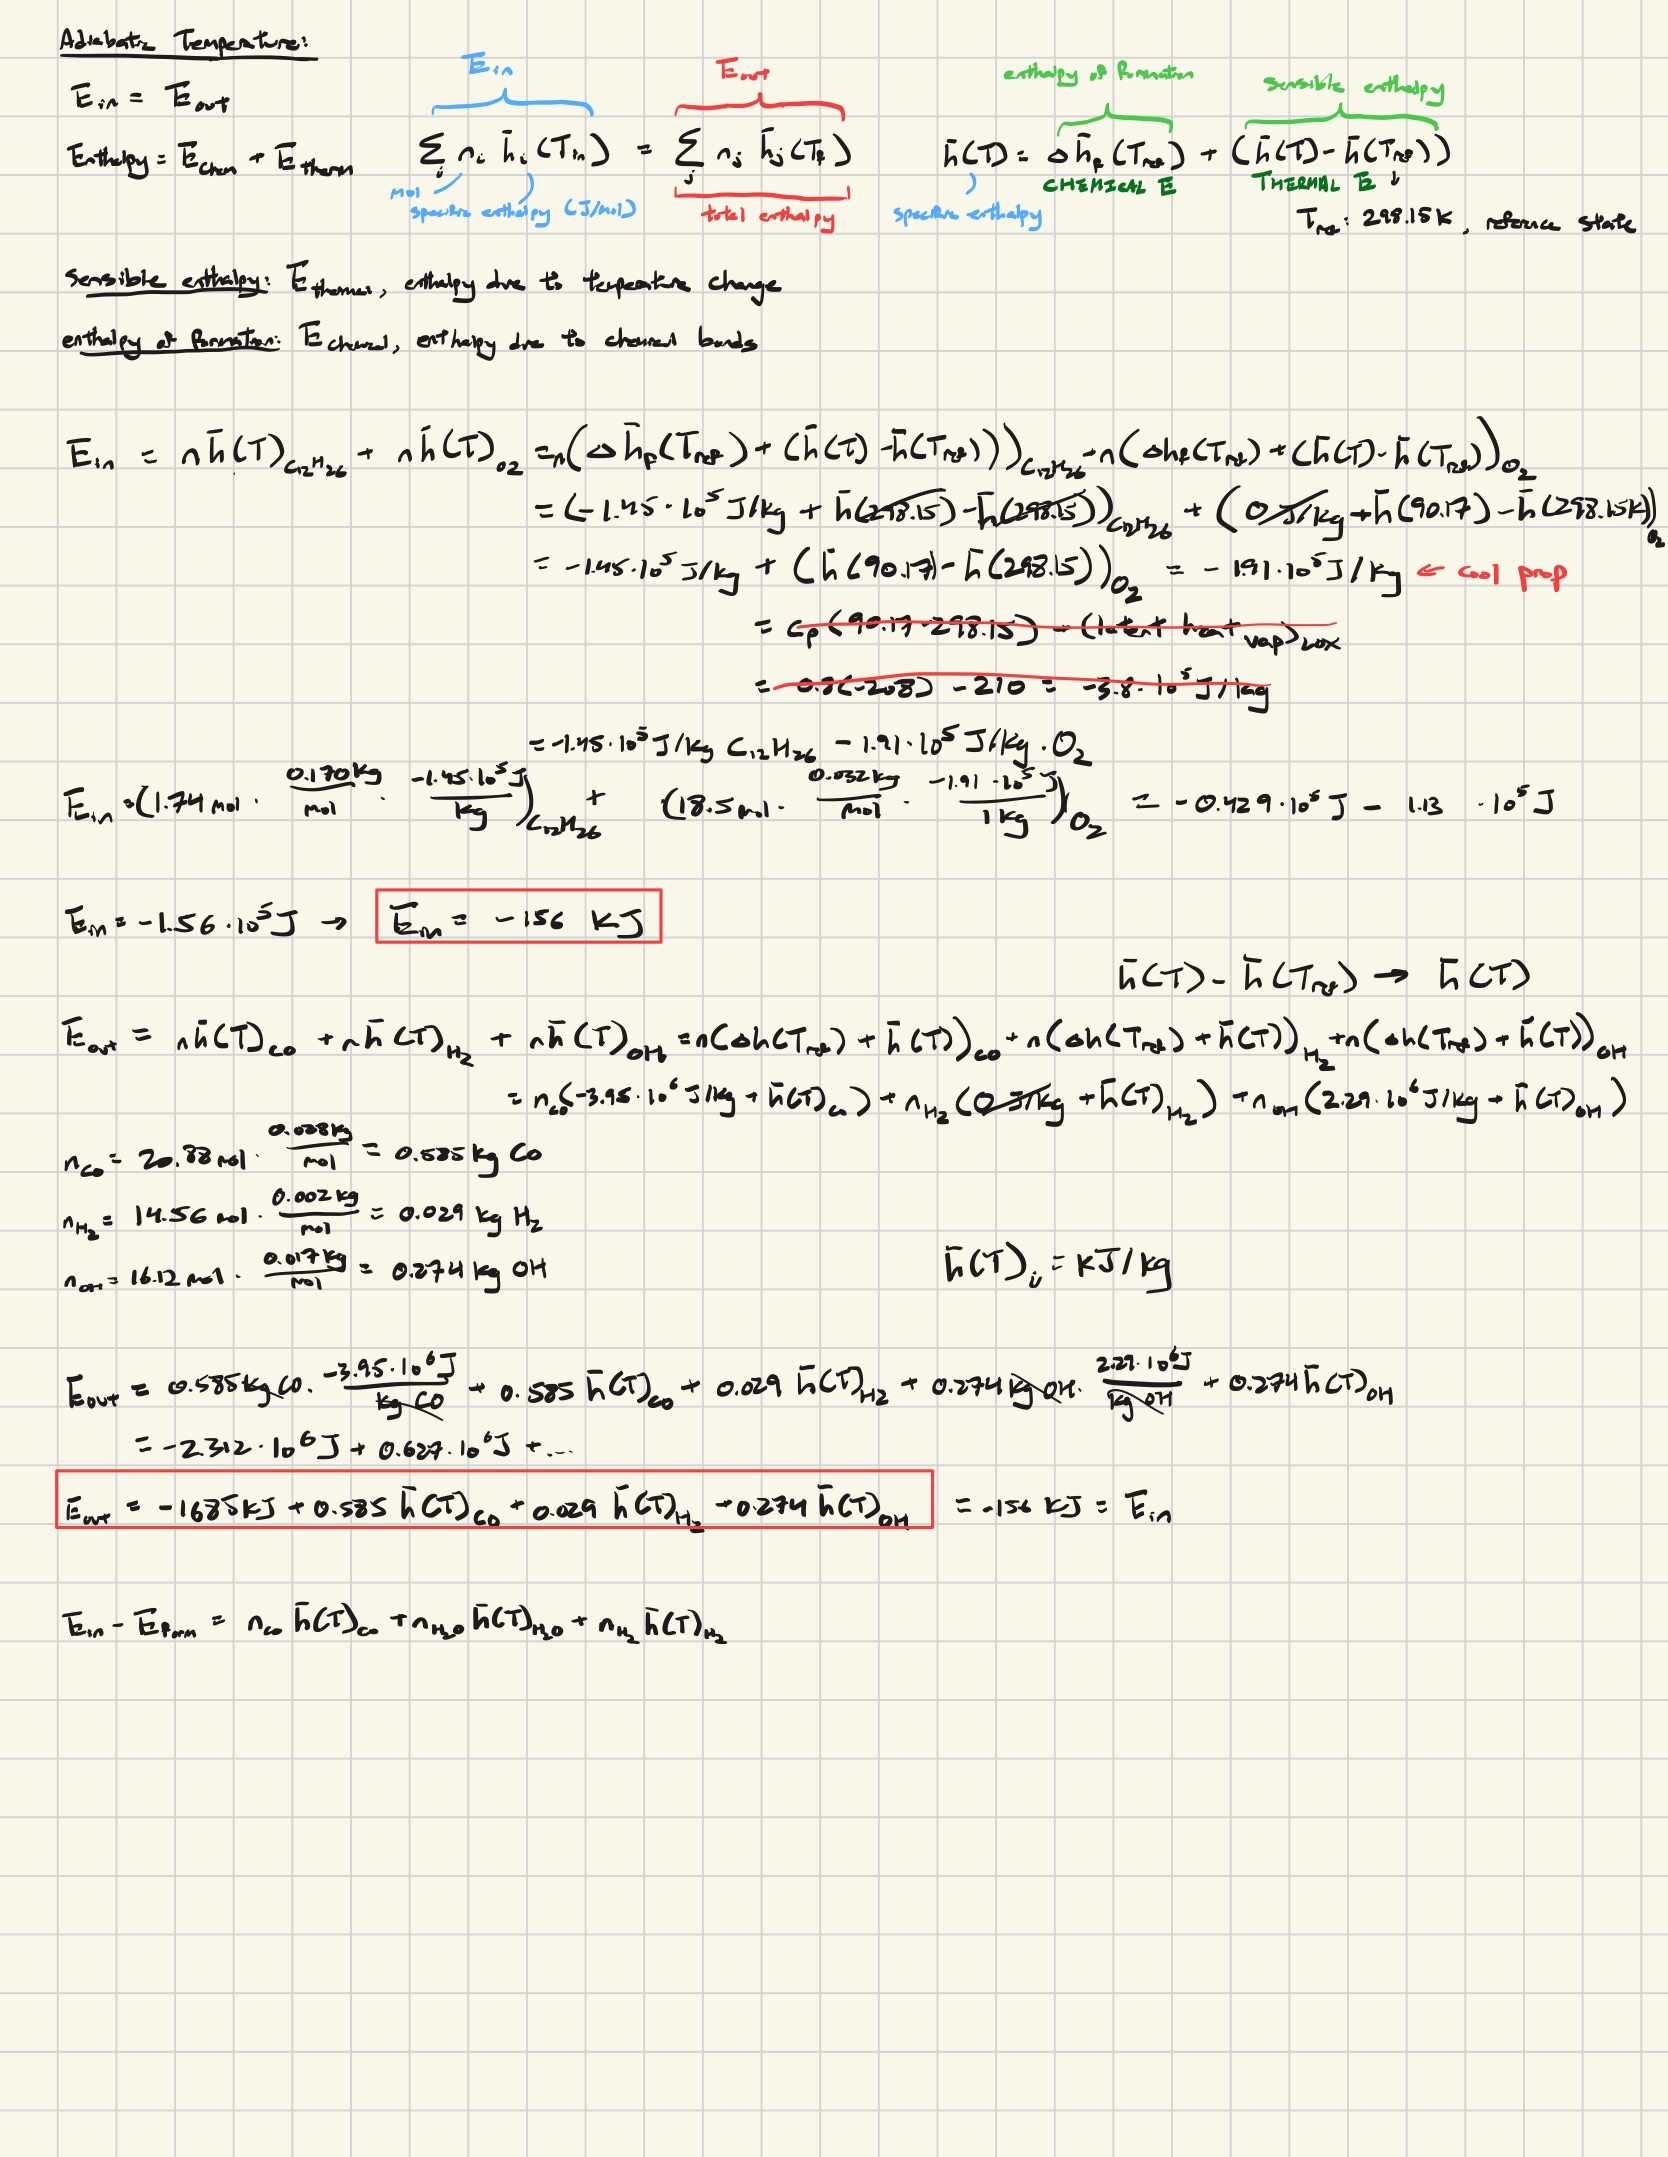 Adiabatic Temperature:
E_in = E_out
Enthalpy = E_chem + E_therm
E_in
E_out
Σ_i n_i h̄_i (T_in) = Σ_j n_j h̄_j (T_f)
mol
specific enthalpy (J/mol)
total enthalpy
enthalpy of formation
sensible enthalpy
h̄(T) = Δh̄_f (T_ref) + (h̄(T) - h̄(T_ref))
CHEMICAL E
THERMAL E ↓
specific enthalpy
T_ref: 298.15K, reference state
Sensible enthalpy: E_thermal, enthalpy due to temperature change
enthalpy of formation: E_chemical, enthalpy due to chemical bonds
E_in = n h̄(T)_C12H26 + n h̄(T)_O2 = n(Δh̄_f(T_ref) + (h̄(T) - h̄(T_ref)))_C12H26 + n(Δh_f(T_ref) + (h̄(T) - h̄(T_ref))_O2
= (-1.45·10^5 J/kg + h̄(298.15) - h̄(298.15))_C12H26 + (0 J/kg + h̄(90.17) - h̄(298.15K))_O2
= -1.45·10^5 J/kg + (h̄(90.17) - h̄(298.15))_O2 = -1.91·10^5 J/kg ← cool prop
= c_p (90.17-298.15) - (latent heat vap)_LOX
= 0.8(-208) - 210 = -3.8·10^5 J/kg
= -1.45·10^5 J/kg C12H26 - 1.91·10^5 J/kg·O2
E_in = (1.74 mol · 0.170kg/mol · -1.45·10^5 J/kg)_C12H26 + (18.5 mol · 0.032 kg/mol · -1.91·10^5 J/1 kg)_O2 = -0.429·10^5 J - 1.13 ·10^5 J
E_in = -1.56·10^5 J → E_in = -156 kJ
h̄(T) - h̄(T_ref) → h̄(T)
E_out = n h̄(T)_CO + n h̄(T)_H2 + n h̄(T)_OH = n(Δh(T_ref) + h̄(T))_CO + n(Δh(T_ref) + h̄(T))_H2 + n(Δh(T_ref) + h̄(T))_OH
= n_CO(-3.95·10^6 J/kg + h̄(T)_CO) + n_H2(0 J/kg + h̄(T)_H2) + n_OH(2.29·10^6 J/kg + h̄(T)_OH)
n_CO = 20.88 mol · 0.028kg/mol = 0.585 kg CO
n_H2 = 14.56 mol · 0.002 kg/mol = 0.029 kg H2
n_OH = 16.12 mol · 0.017 kg/mol = 0.274 kg OH
h̄(T)_i = kJ/kg
E_out = 0.585 kg CO · -3.95·10^6 J/kg CO + 0.585 h̄(T)_CO + 0.029 h̄(T)_H2 + 0.274 kg OH · 2.29·10^6 J/kg OH + 0.274 h̄(T)_OH
= -2.312·10^6 J + 0.627·10^6 J + ...
E_out = -1685 kJ + 0.585 h̄(T)_CO + 0.029 h̄(T)_H2 + 0.274 h̄(T)_OH = -156 kJ = E_in
E_in - E_form = n_CO h̄(T)_CO + n_H2O h̄(T)_H2O + n_H2 h̄(T)_H2